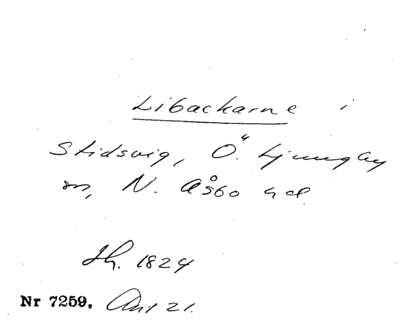 Libackarne i
Stidsvig, Ö. Ljungby
sn, N. Åsbo hd.
Jh. 1824
Nr 7259. Ant 21.